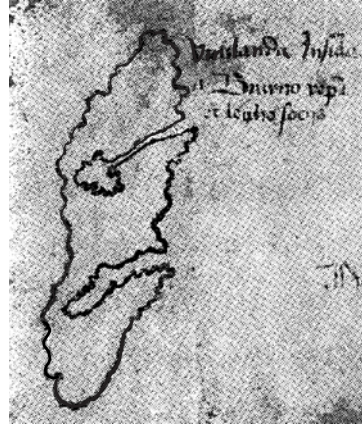 Vinilanda Insula
a Byarno repa
et leipho socijs